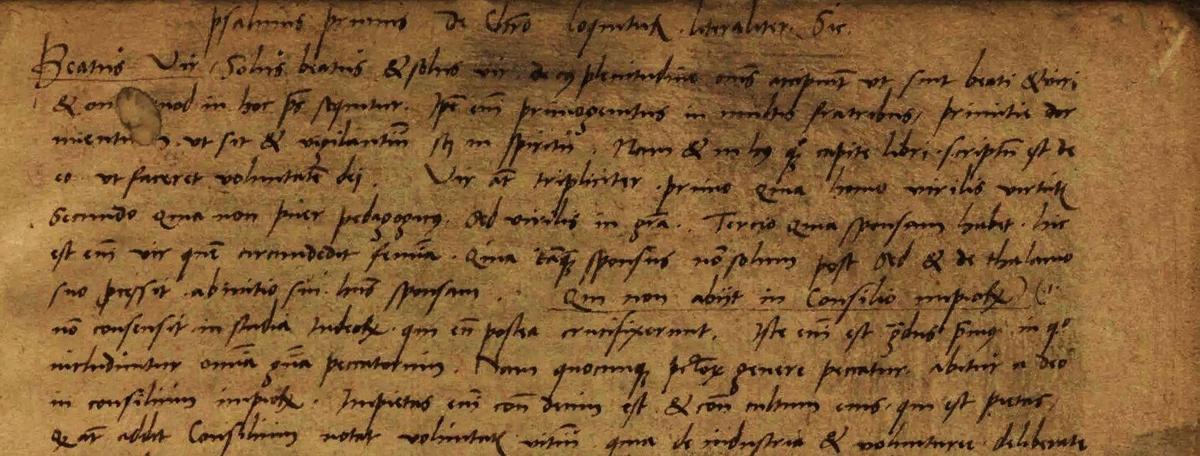 psalmus primus De Chro loquitur literaliter. Sic.
Beatus Vir. Solus beatus & solus vir de cuius plenitudine oms accipiunt ut sint beati & viri
& om quod in hoc ps sequitur. Ipe em primogenitus in multis fratribus, primitie dor
mientium. ut sit & vigilantium sc in spiritu. Nam & in hoc capite libri scriptu est de
eo ut faceret voluntate dei. Vir at tripliciter primo quia homo virilis virtutis
Secundo quia non puer pedagogicus. sed virilis in gra. Tercio quia sponsam habet. hic
est em vir que circundedit femina. Quia tanq sponsus no solum post sed & de thalamo
suo pcessit ab initio sui hns sponsam. Qui non abijt in Consilio impiorum
no consensit in studia Iudeorum. qui eu postea crucifixerunt. Iste em est gradus primus in quo
includuntur omnia gna peccatorum. Nam quocumq genere peccatur abitur a deo
in consilium impiorum. Impietas em cont deum est & cont cultum eius. qui est pietas,
Q at addit Consilium notat voluntatis vitiu. quia de industria & voluntarie deliberate